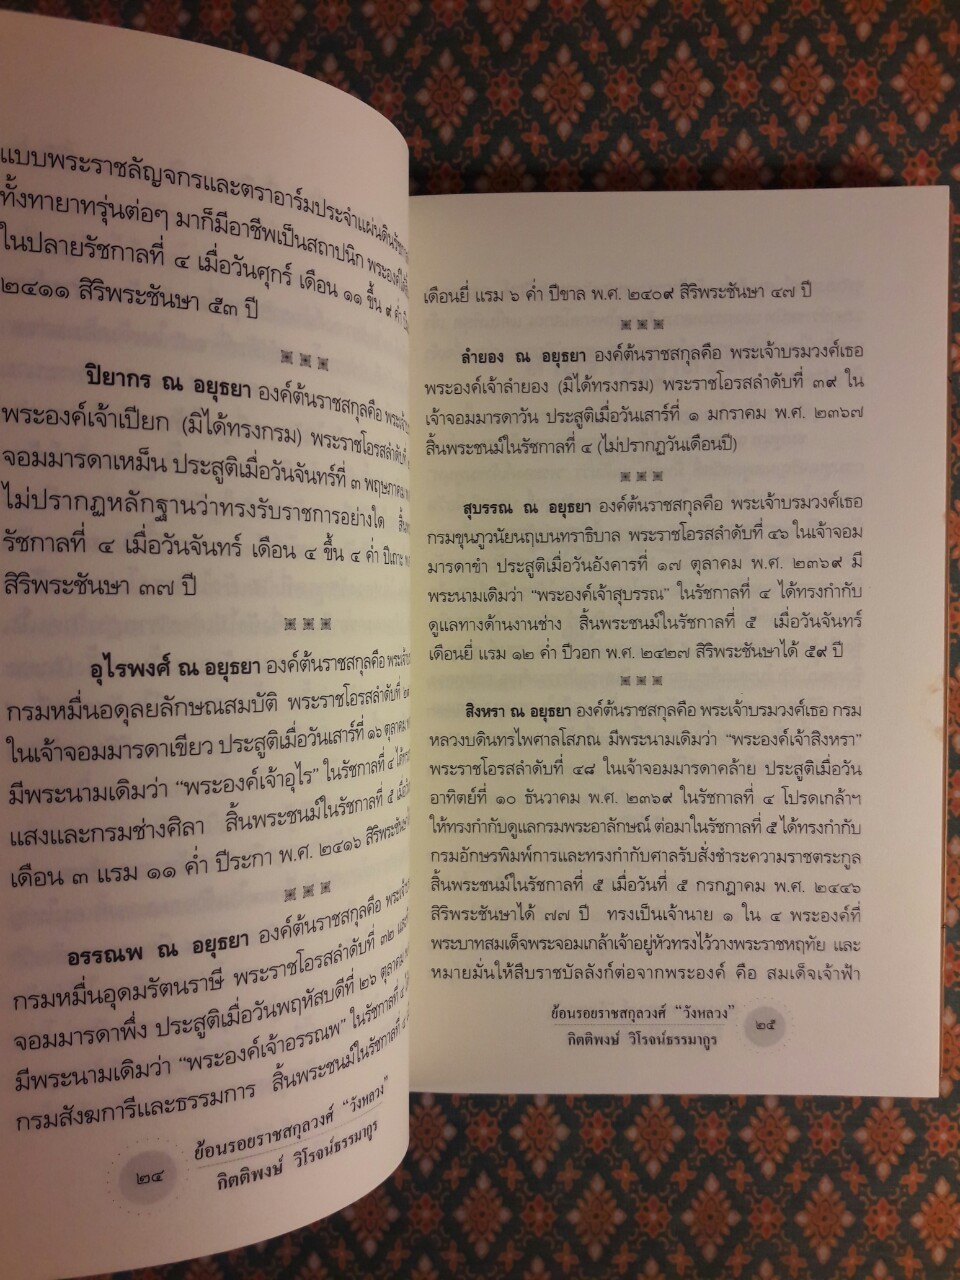 แบบพระราชลัญจกรและตราอาร์มประจำแผ่นดิน
ทั้งทายาทรุ่นต่อๆ มาก็มีอาชีพเป็นสถาปนิก
ในปลายรัชกาลที่ ๔ เมื่อวันศุกร์ เดือน ๑๑ ขึ้น ๙ ค่ำ
๒๔๑๑ สิริพระชันษา ๕๓ ปี
ปิยากร ณ อยุธยา องค์ต้นราชสกุลคือ
พระองค์เจ้าเปียก (มิได้ทรงกรม) พระราชโอรสลำดับที่
จอมมารดาเหม็น ประสูติเมื่อวันจันทร์ที่ ๓ พฤษภาคม
ไม่ปรากฏหลักฐานว่าทรงรับราชการอย่างใด
รัชกาลที่ ๔ เมื่อวันจันทร์ เดือน ๔ ขึ้น ๔ ค่ำ ปีเถาะ
สิริพระชันษา ๓๗ ปี
อุไรพงศ์ ณ อยุธยา องค์ต้นราชสกุลคือ
กรมหมื่นอดุลยลักษณสมบัติ พระราชโอรสลำดับที่
ในเจ้าจอมมารดาเขียว ประสูติเมื่อวันเสาร์ที่ ๑๖ ตุลาคม
มีพระนามเดิมว่า “พระองค์เจ้าอุไร” ในรัชกาลที่ ๔
แสงและกรมช่างศิลา สิ้นพระชนม์ในรัชกาลที่ ๕
เดือน ๓ แรม ๑๑ ค่ำ ปีระกา พ.ศ. ๒๔๑๖ สิริพระชันษา
อรรณพ ณ อยุธยา องค์ต้นราชสกุลคือ
กรมหมื่นอุดมรัตนราษี พระราชโอรสลำดับที่ ๓๒
จอมมารดาพึ่ง ประสูติเมื่อวันพฤหัสบดีที่ ๒๖ ตุลาคม
มีพระนามเดิมว่า “พระองค์เจ้าอรรณพ” ในรัชกาลที่ ๔
กรมสังฆการีและธรรมการ สิ้นพระชนม์ในรัชกาลที่
ย้อนรอยราชสกุลวงศ์ “วังหลวง”
กิตติพงษ์ วิโรจน์ธรรมากูร
๒๔
เดือนยี่ แรม ๖ ค่ำ ปีขาล พ.ศ. ๒๔๐๙ สิริพระชันษา ๔๗ ปี
ลำยอง ณ อยุธยา องค์ต้นราชสกุลคือ พระเจ้าบรมวงศ์เธอ
พระองค์เจ้าลำยอง (มิได้ทรงกรม) พระราชโอรสลำดับที่ ๓๙ ใน
เจ้าจอมมารดาวัน ประสูติเมื่อวันเสาร์ที่ ๑ มกราคม พ.ศ. ๒๓๖๗
สิ้นพระชนม์ในรัชกาลที่ ๔ (ไม่ปรากฏวันเดือนปี)
สุบรรณ ณ อยุธยา องค์ต้นราชสกุลคือ พระเจ้าบรมวงศ์เธอ
กรมขุนภูวนัยนฤเบนทราธิบาล พระราชโอรสลำดับที่ ๔๖ ในเจ้าจอม
มารดาขำ ประสูติเมื่อวันอังคารที่ ๑๗ ตุลาคม พ.ศ. ๒๓๖๙ มี
พระนามเดิมว่า “พระองค์เจ้าสุบรรณ” ในรัชกาลที่ ๔ ได้ทรงกำกับ
ดูแลทางด้านงานช่าง สิ้นพระชนม์ในรัชกาลที่ ๕ เมื่อวันจันทร์
เดือนยี่ แรม ๑๒ ค่ำ ปีวอก พ.ศ. ๒๔๒๗ สิริพระชันษาได้ ๕๙ ปี
สิงหรา ณ อยุธยา องค์ต้นราชสกุลคือ พระเจ้าบรมวงศ์เธอ กรม
หลวงบดินทรไพศาลโสภณ มีพระนามเดิมว่า “พระองค์เจ้าสิงหรา”
พระราชโอรสลำดับที่ ๔๘ ในเจ้าจอมมารดาคล้าย ประสูติเมื่อวัน
อาทิตย์ที่ ๑๐ ธันวาคม พ.ศ. ๒๓๖๙ ในรัชกาลที่ ๔ โปรดเกล้าฯ
ให้ทรงกำกับดูแลกรมพระอาลักษณ์ ต่อมาในรัชกาลที่ ๕ ได้ทรงกำกับ
กรมอักษรพิมพ์การและทรงกำกับศาลรับสั่งชำระความราชตระกูล
สิ้นพระชนม์ในรัชกาลที่ ๕ เมื่อวันที่ ๕ กรกฎาคม พ.ศ. ๒๔๔๖
สิริพระชันษาได้ ๗๗ ปี ทรงเป็นเจ้านาย ๑ ใน ๔ พระองค์ที่
พระบาทสมเด็จพระจอมเกล้าเจ้าอยู่หัวทรงไว้วางพระราชหฤทัย และ
หมายมั่นให้สืบราชบัลลังก์ต่อจากพระองค์ คือ สมเด็จเจ้าฟ้า
ย้อนรอยราชสกุลวงศ์ “วังหลวง”
กิตติพงษ์ วิโรจน์ธรรมากูร
๒๕